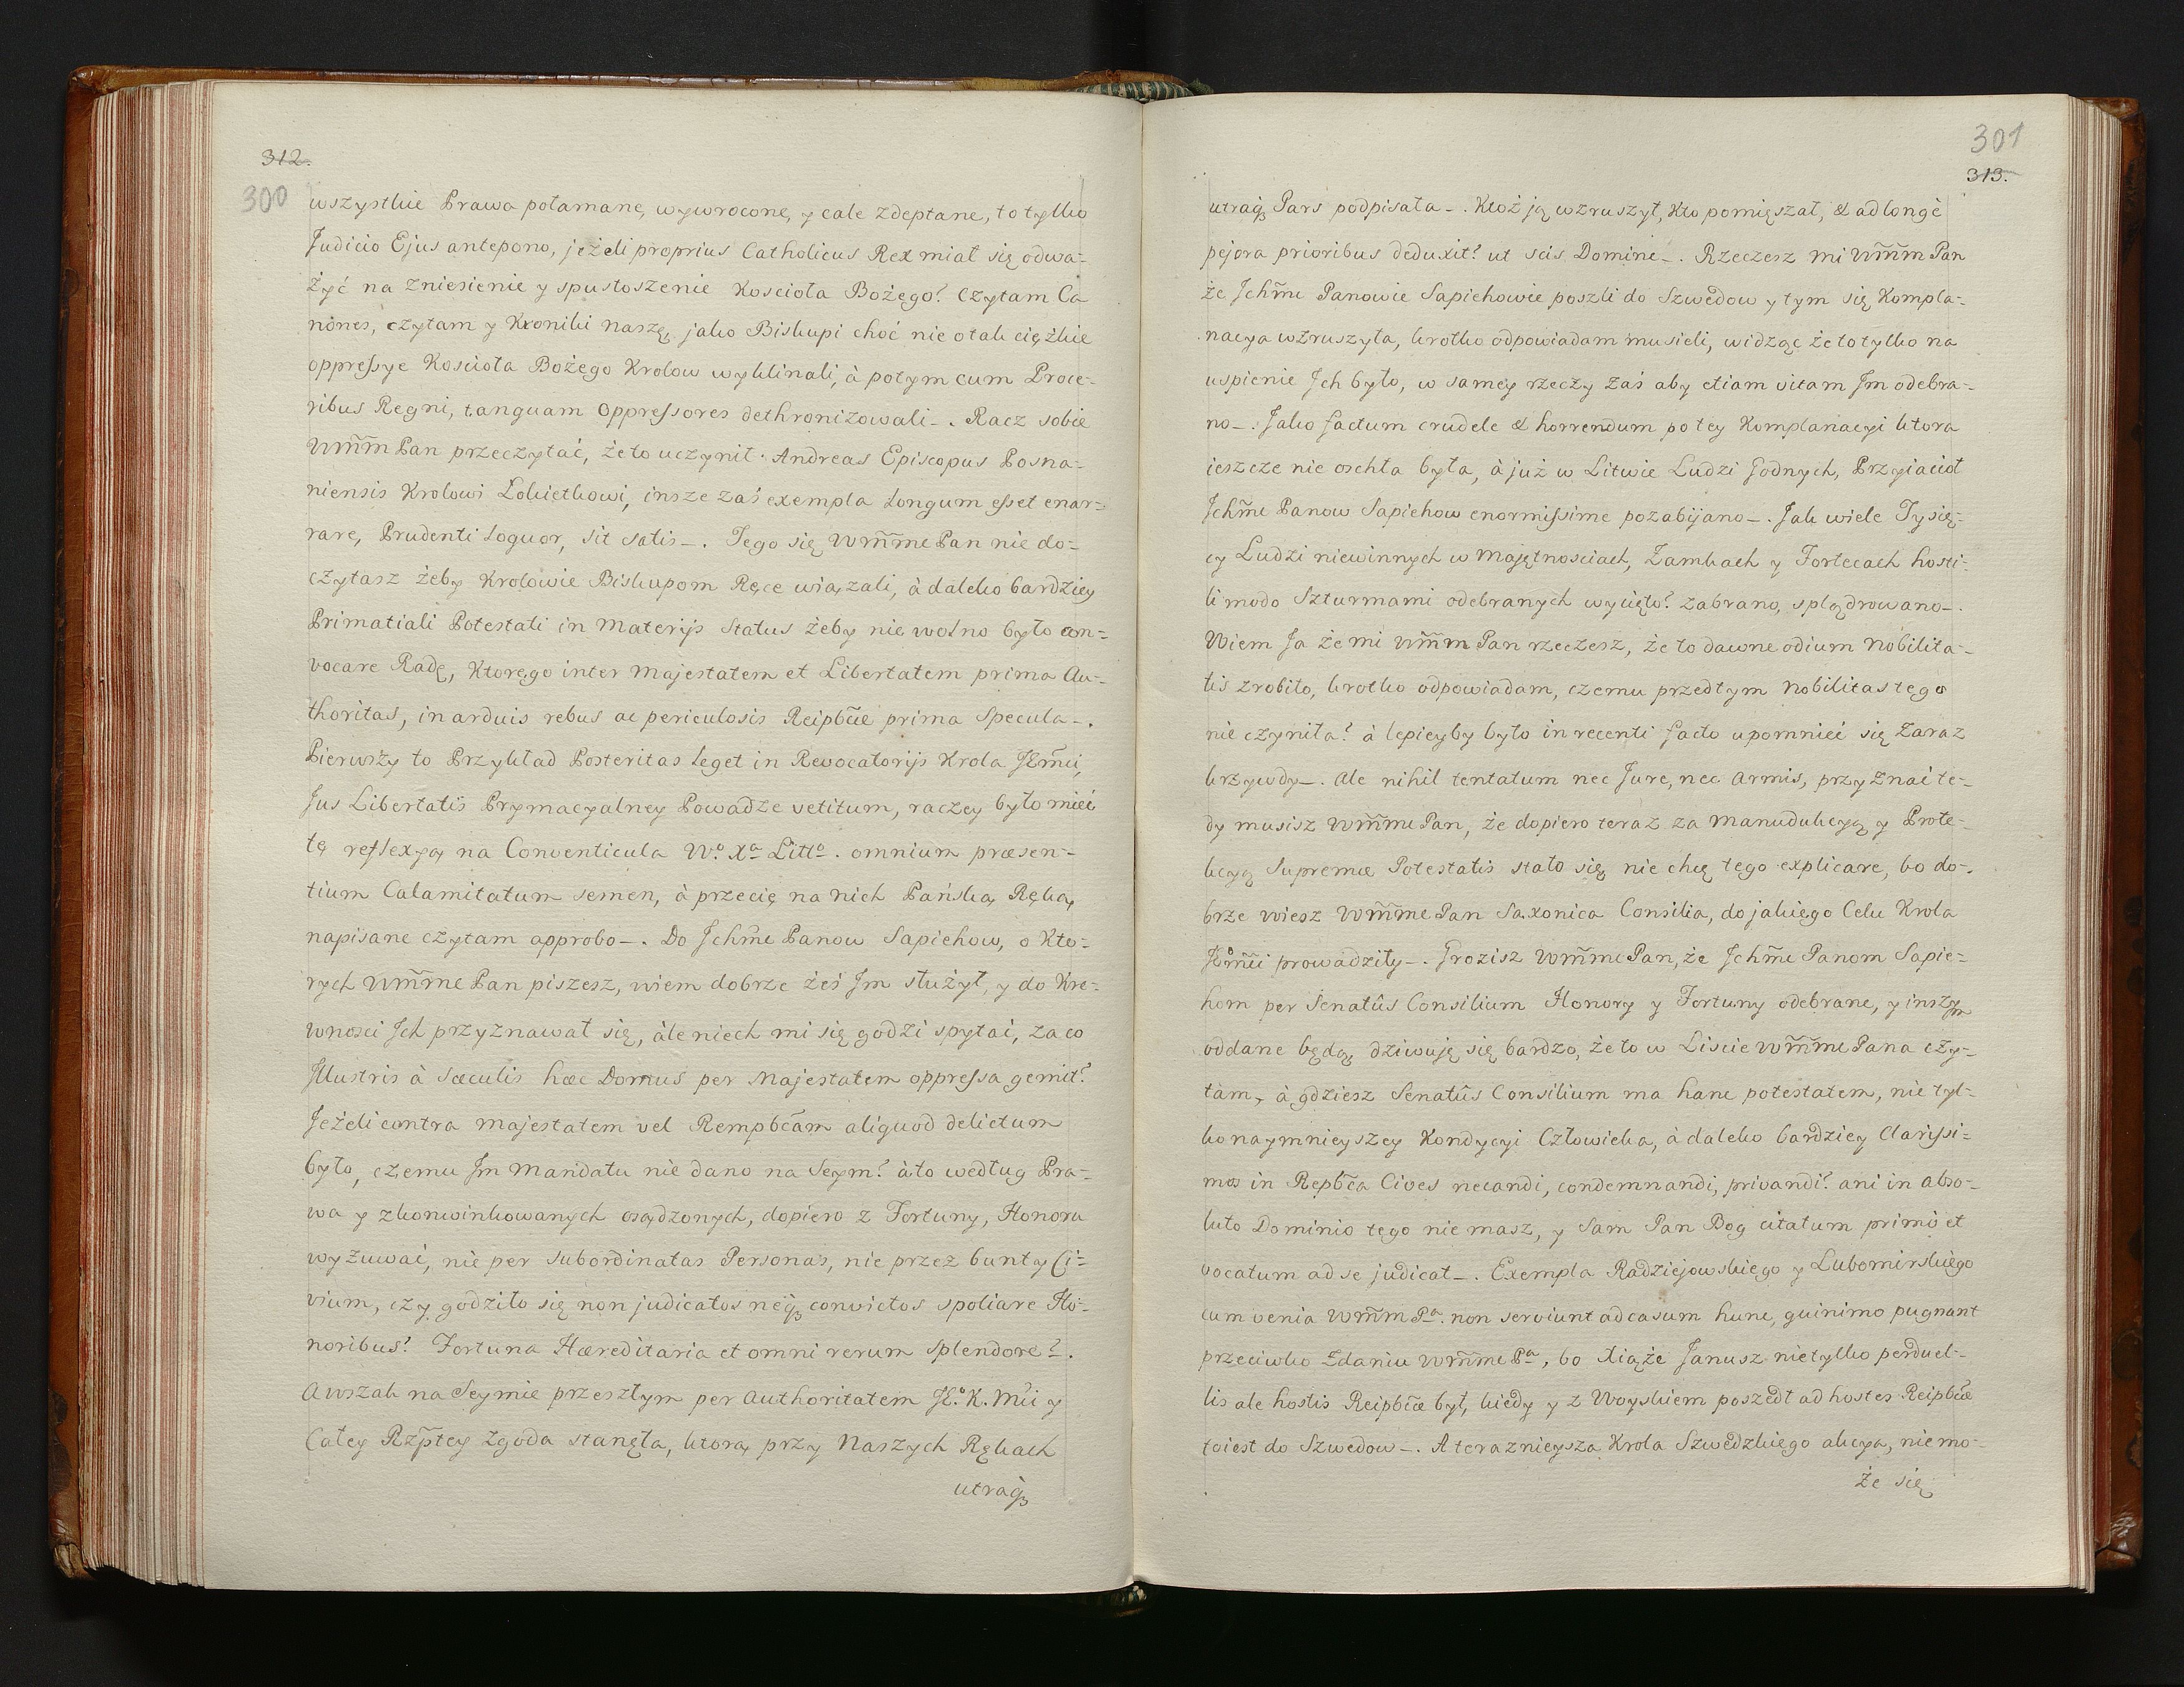 312.
300
wszystkie Prawa połamane, wywrocone, y cale zdeptane, to tylko
Judicio Ejus antepono, jeżeli proprius Catholicus Rex miał się odwa-
żyć na zniesienie y spustoszenie Koscioła Bożego? Czytam Ca
nones, czytam y Kroniki naszę, jako Biskupi choć nie o tak cięźkie
oppressye Koscioła Bożego Krolow wyklinali, à potym cum Proce-
ribus Regni, tanquam Oppressores dethronizowali_. Racz sobie
Wm̃m Pan przeczytać, że to uczynił. Andreas Episcopus Posna-
niensis Krolowi Łokietkowi, insze zaś exempla Longum esset enar-
rare, Prudenti Loquor, sit satis_. Tego się Wm̃me Pan nie do-
czytasz żeby Krolowie Biskupom Ręce wiązali, à daleko bardziey
Primatiali Potestati in Materijs Status żeby nie wolno było con-
vocare Radę, Ktorego inter Majestatem et Libertatem prima Au-
thoritas, in arduis rebus ac periculosis Reipbcæ prima Specula_.
Pierwszy to Przykład Posteritas leget in Revocatorijs Krola JEm̃ci,
Jus Libertatis Prymacyalney Powadze vetitum, raczey było mieć
tę reflexyą na Conventicula Wº. Xª Littº. omnium præsen-
tium Calamitatum semen, à przecię na nich Pańską Ręką
napisane czytam approbo_. Do Jchm̃e Panow Sapiehow, o Kto-
rych Wm̃me Pan piszesz, wiem dobrze żeś Jm służył, y do Kre-
wnosci Jch przyznawał się, àle niech mi się godzi spytać, za co
Illustris à Sæculis hæc Domus per Majestatem oppressa gemit?
Jeżeli contra majestatem vel Rempbcãm aliquod delictum
było, czemu Jm Mandatu nie dano na Seym? à to według Pra-
wa y zkonwinkowanych osądzonych, dopiero z Fortuny, Honoru
wyzuwać, nie per subordinatas Personas, nie przez bunty Ci-
vium, czy godziło się non judicatos neq3 convictos spoliare Ho-
noribus? Fortuna Hæreditaria et omni rerum splendore?.
Awszak na Seymie przeszłym per Authoritatem JEº. K. Mci y
Całey Rzp̃tey zgoda stanęła, ktorą przy Naszych Rękach
utraq3
301
313.
utraq3 Pars podpisała_. Ktoż ją wzruszył, Kto pomięszał, & ad longè
pejora prioribus deduxit? ut scis Domine_. Rzeczesz mi Wm̃m Pan
że Jchm̃e Panowie Sapiehowie poszli do Szwedow y tym się Kompla-
nacya wzruszyła, krotko odpowiadam musieli, widząc że to tylko na
uspienie Jch było, w samey rzeczy zaś aby etiam vitam Jm odebra-
no_. Jako factum crudele & horrendum po tey Komplanacyi ktora
ieszcze nie oschła była, à już w Litwie Ludzi Godnych, Przyiacioł
Jchm̃e Panow Sapiehow enormissime pozabijano_. Jak wiele Tysię-
cy Ludzi niewinnych w Majętnosciach, Zamkach y Fortecach hosti-
li modo Szturmami odebranych wycięto? zabrano, splądrowano_.
Wiem Ja że mi Wm̃m Pan rzeczesz, że to dawne odium Nobilita-
tis zrobiło, krotko odpowiadam, czemu przedtym Nobilitas tego
nie czyniła? à lepieyby było in recenti facto upomnieć się Zaraz
krzywdy_. Ale nihil tentatum nec Jure, nec Armis, przyznać te-
dy musisz Wm̃me Pan, że dopiero teraz za Manudukcyą y Prote-
kcyą Supremæ Potestatis stało się, nie chcę tego explicare, bo do-
brze wiesz Wm̃me Pan Saxonica Consilia, do jakiego Celu Krola
JEºm̃ci prowadziły_. Grozisz Wm̃me Pan, że Jchm̃e Panom Sapie-
hom per Senatûs Consilium Honory y Fortuny odebrane, y inszym
oddane będą, dziwuję się bardzo, że to w Liscie Wm̃me Pana czy-
tam, à gdziesz Senatûs Consilium ma hanc potestatem, nie tyl-
ko naymnieyszey Kondycyi Człowieka, à daleko bardziey Clarissi-
mos in Repbcã Cives necandi, condemnandi, privandi? ani in abso-
luto Dominio tego nie masz, y Sam Pan Bog citatum primò et
vocatum ad se judicat_. Exempla Radziejowskiego y Lubomirskiego
cum venia Wm̃m Pª. non serviunt ad casum hunc, quinimo pugnant
przeciwko Zdaniu Wm̃me Pª, bo Xiąże Janusz nie tylko perduel-
lis ale hostis Reipbcæ był, kiedy y z Woyskiem poszedł ad hostes Reipbcæ
to iest do Szwedow_. A teraznieysza Krola Szwedzkiego akcya, nie mo-
że się